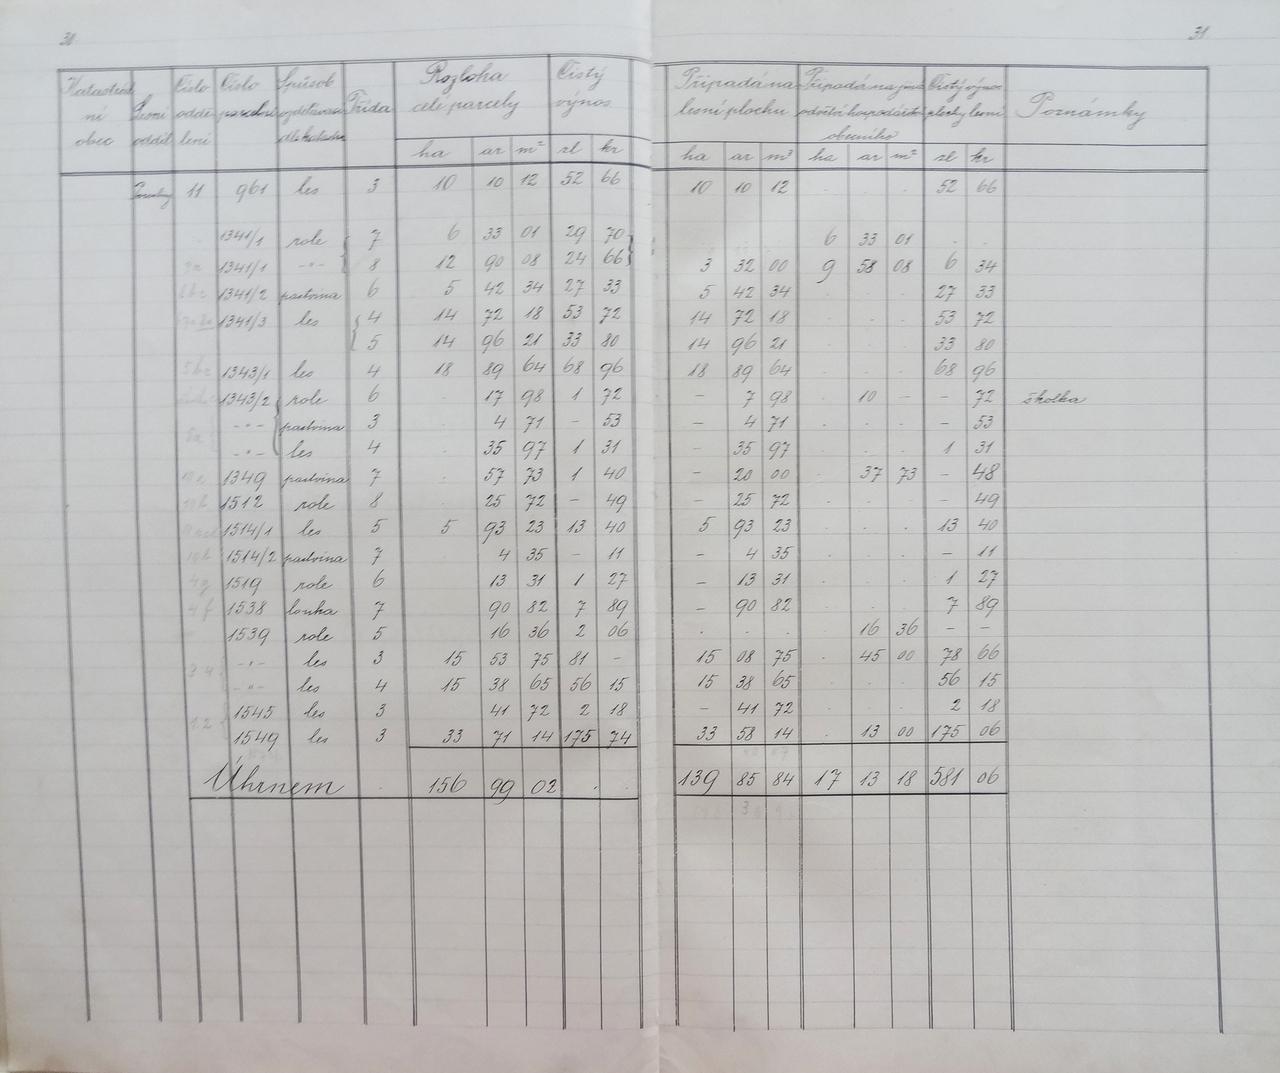 30
31
Katastrální obec Lesní odděl. Číslo oddělení Číslo parcelní Spůsob vzdělávání dle katastru Třída Rozloha celé parcely Čistý výnos Připadá na lesní plochu Připadá na jiná odvětví hospodářství obecního Čistý výnos plochy lesní Poznámky
ha ar m² zl kr ha ar m³ ha ar m² zl kr
11 961 les 3 10 10 12 52 66 10 10 12 . . . 52 66
1341/1 role 7 6 33 01 29 70 . . . 6 33 01 . .
1341/1 -"- 8 12 90 08 24 66 3 32 00 9 58 08 6 34
1341/2 pastvina 6 5 42 34 27 33 5 42 34 . . . 27 33
1341/3 les 4 14 72 18 53 72 14 72 18 . . . 53 72
5 14 96 21 33 80 14 96 21 . . . 33 80
1343/1 les 4 18 89 64 68 96 18 89 64 . . . 68 96
1343/2 role 6 . 17 98 1 72 – 7 98 . 10 – – 72 školka
-"- pastvina 3 . 4 71 – 53 – 4 71 . . . – 53
-"- les 4 . 35 97 1 31 – 35 97 . . . 1 31
1349 pastvina 7 . 57 73 1 40 – 20 00 . 37 73 – 48
1512 role 8 25 72 – 49 – 25 72 . . . – 49
1514/1 les 5 5 93 23 13 40 5 93 23 . . . 13 40
1514/2 pastvina 7 4 35 – 11 – 4 35 . . . – 11
4g 1519 role 6 13 31 1 27 – 13 31 . . . 1 27
4f 1538 louka 7 90 82 7 89 – 90 82 . . . 7 89
1539 role 5 16 36 2 06 . . . 16 36 – –
3 4 -"- les 3 15 53 75 81 – 15 08 75 . 45 00 78 66
-"- les 4 15 38 65 56 15 15 38 65 . . . 56 15
1545 les 3 41 72 2 18 – 41 72 . . . 2 18
1.2 1549 les 3 33 71 14 175 74 33 58 14 . 13 00 175 06
Úhrnem . 156 99 02 . . 139 85 84 17 13 18 581 06